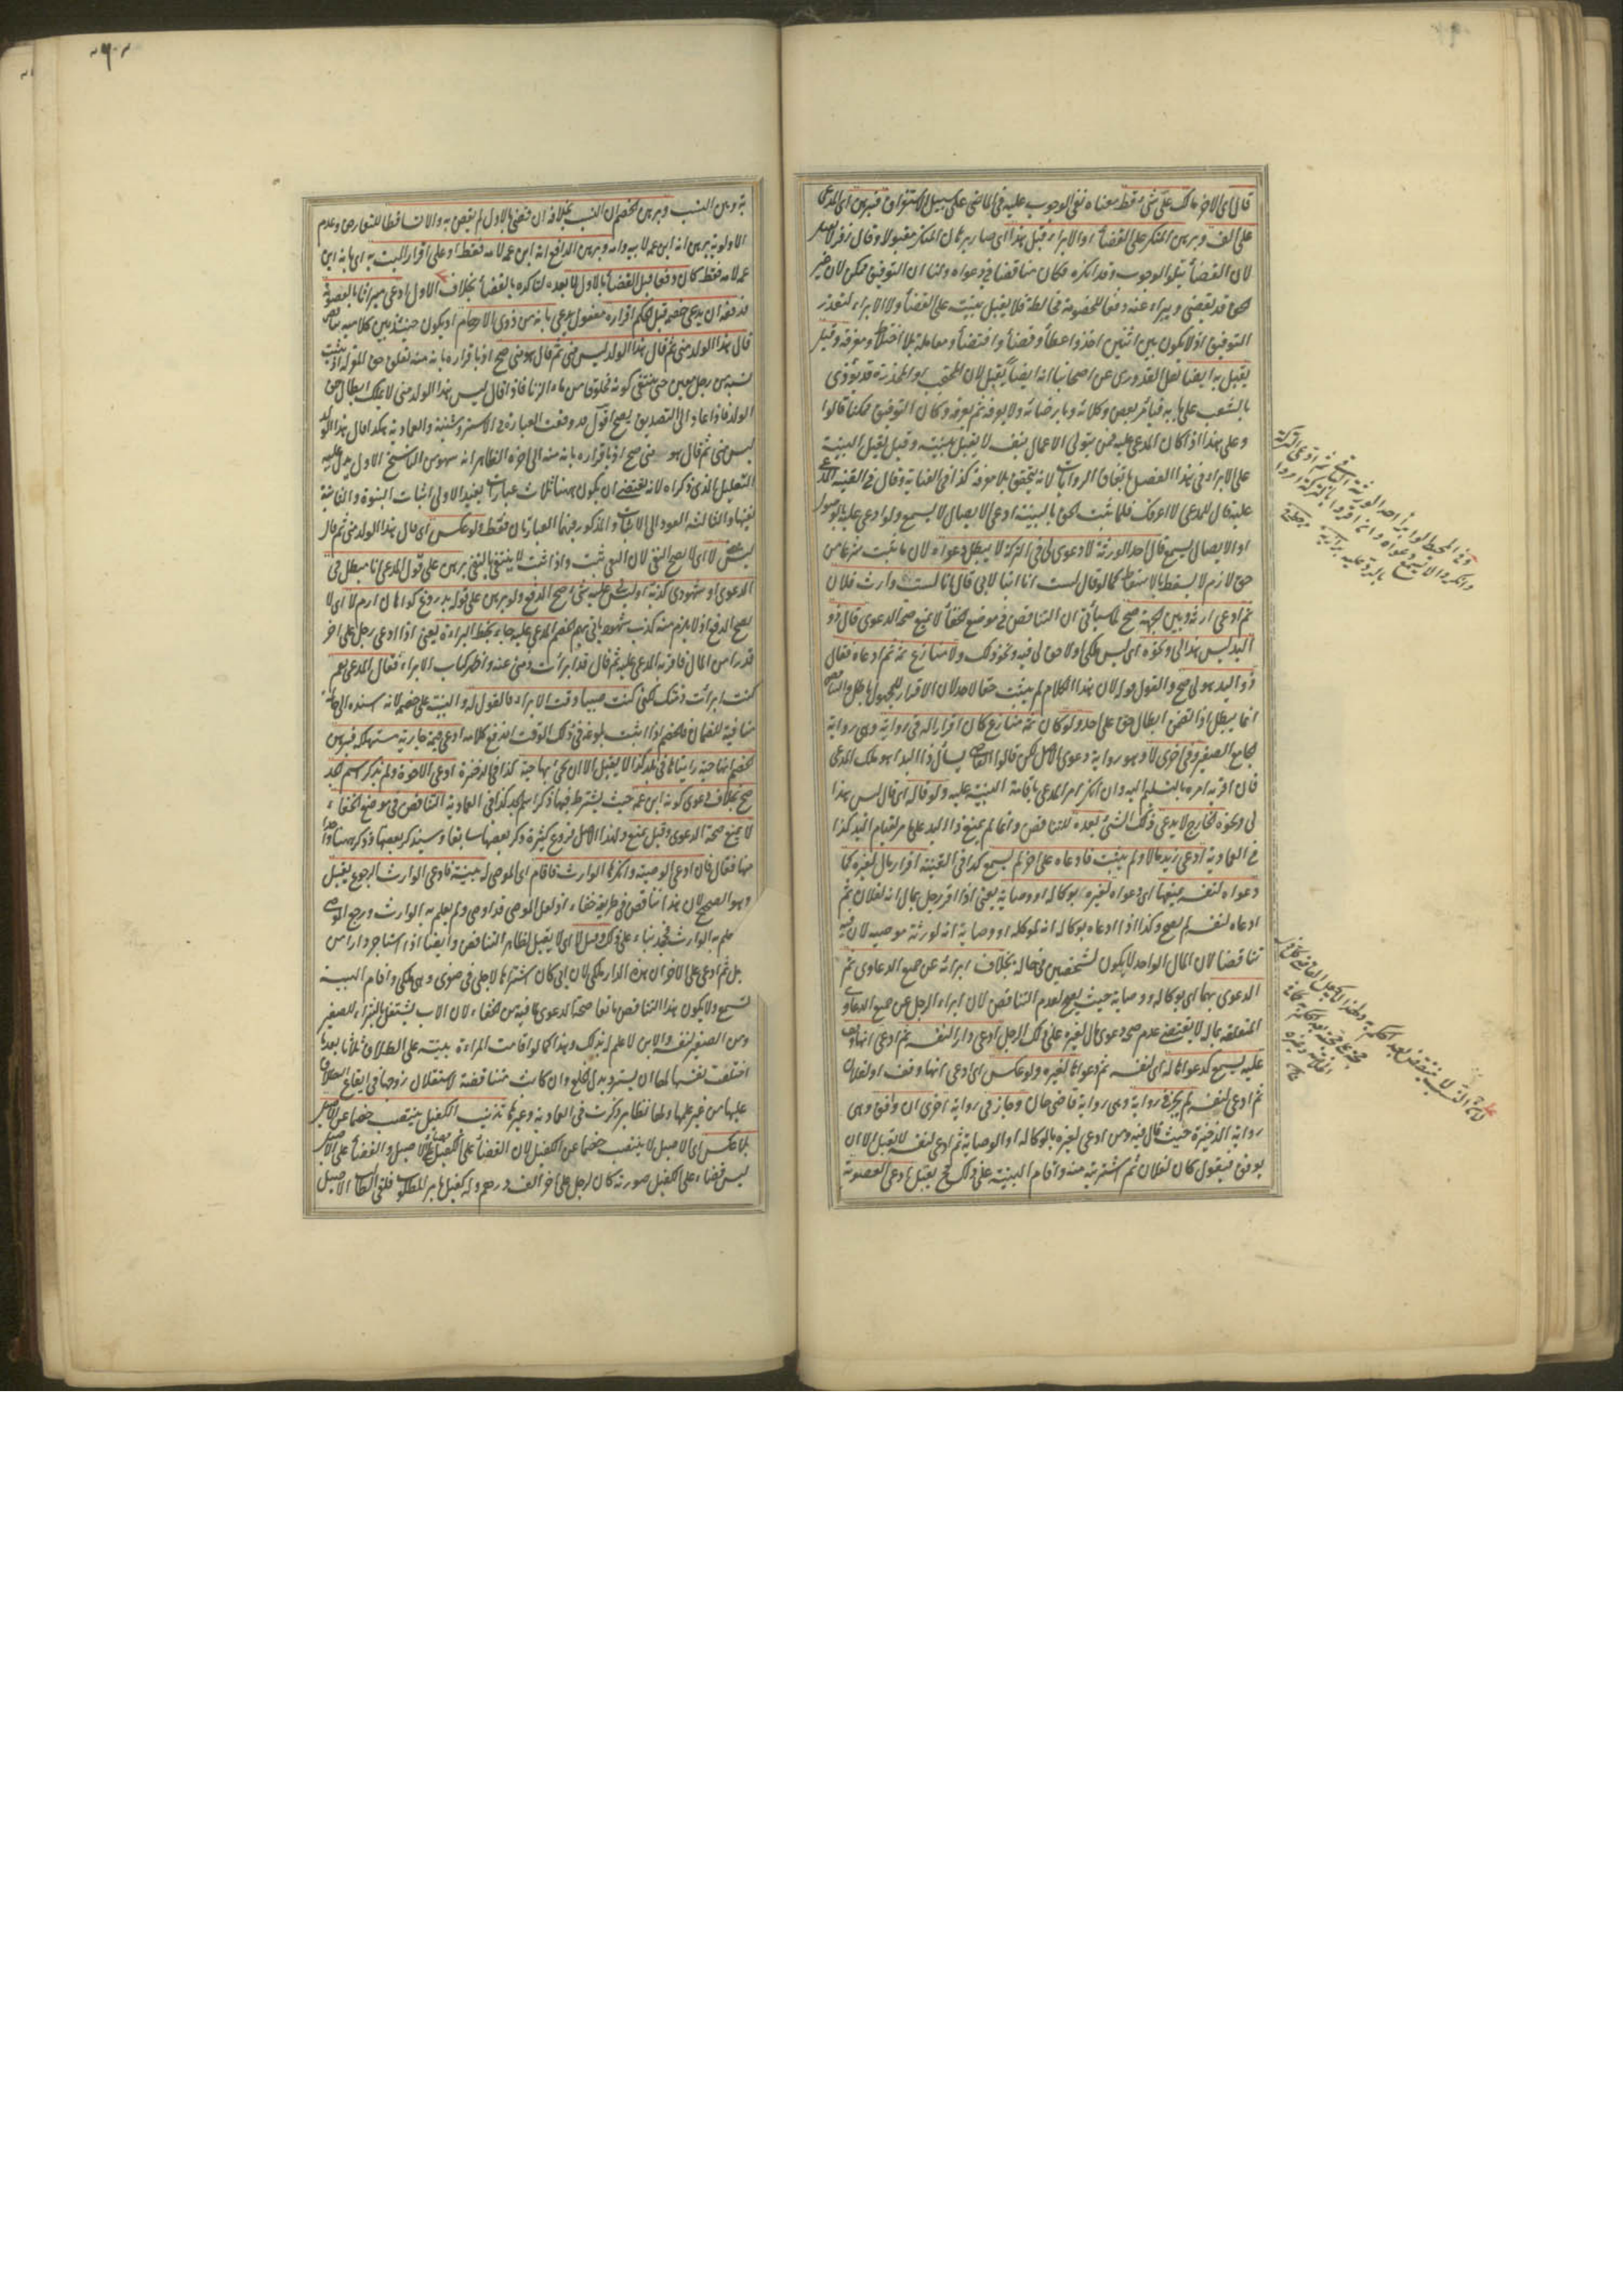 قال اى الاخر ما لك على شئ قط معناه نفى الوجوب عليه فى الماضى على سبيل الاستغراق فبرهن اى المدعى
على الف وبرهن المنكر على القضاء او الابراء قبل هذا اى صار برهان المنكر مقبولا وقال زفر لا يقبل
لان القضاء يتلو الوجوب وقد انكره فكان مناقضا فى دعواه ولنا ان التوفيق ممكن لان غير
الحق قد يقضى ويبراء عنه دفعا للخصومة فلا يقبل بينته على القضاء ولا الابراء لتعذر
التوفيق اذ لا يكون بين اثنين اخذ واعطاء وقضاء واقتضاء ومعاملة بلا اختلاط ومعرفة وقيل
يقبل به ايضا نقل القدورى عن اصحابنا انه ايضا يقبل لان المحتجب او المخدرة قد يؤذى
بالشغب على بابه فيأمر بعض وكلائه بارضائه ولا يعرفه ثم يعرفه وكان التوفيق ممكنا قالوا
وعلى هذا اذا كان المدعى عليه ممن يتولى الاعمال بنفسه لا يقبل بينته وقيل يقبل البينة
على الابراء فى هذا الفصل باتفاق الروايات لانه يتحقق بلا معرفة كذا فى العناية وقال فى القنية المدعى
عليه قال للمدعى لا اعرفك فلما ثبت الحق بالبينة ادعى الايصال لا يسمع ولو ادعى عليه الوصول
او الايصال يسمع قال احد الورثة لا دعوى لى فى التركة لا يبطل دعواه لان ما ثبت شرعا من
حق لازم لا يسقط بالاسقاط كما لو قال لست انا ابنا لابى قال انا لست وارث فلان
ثم ادعى ارثه وبين الجهة صح لما سيأتى ان التناقض فى موضع الخفاء لا يمنع صحة الدعوى قال ذو
اليد ليس هذا لى ونحوه اى ليس ملكى او لا حق لى فيه ونحو ذلك ولا منازع ثمه ثم ادعاه فقال
ذو اليد هو لى صح والقول قوله لان هذا الكلام لم يثبت حقا لاحد لان الاقرار للمجهول باطل والتناقض
انما يبطل اذا تضمن ابطال حق على احد ولو كان ثمة منازع كان اقرارا له فى رواية وهى رواية
الجامع الصغير وفى اخرى لا وهو رواية دعوى الاصل لكن قالوا القاضى يسأل ذا اليد اهو ملك المدعى
فان اقر به امره بالتسليم اليه وان انكر امر المدعى باقامة البينة عليه ولو قاله اى قال ليس هذا
لى ونحوه الخارج لا يدعى ذلك الشئ بعده للتناقض وانما لم يمنع ذا اليد على ما مر لقيام اليد كذا
فى العمادية ادعى زيد مالا ولم يثبت فادعاه على اخر لم يسمع كذا فى القنية اقرار مال لغيره كما
دعواه لنفسه يمنعها اى دعواه لغيره بوكالة او وصاية يعنى اذا اقر رجل بمال انه لفلان ثم
ادعاه لنفسه لم يصح وكذا اذا ادعاه بوكالة انه لموكله او وصاية انه لورثة موصيه لان فيه
تناقضا لان المال الواحد لا يكون لشخصين فى حالة بخلاف ابرائه عن جميع الدعاوى ثم
الدعوى بهما اى بوكالة ووصاية حيث يصح لعدم التناقض لان ابراء الرجل عن جميع الدعاوى
المتعلقة بماله لا يقتضى عدم صحة دعوى مال لغيره على ذلك الرجل ادعى دارا لنفسه ثم ادعى انها وقف
عليه يسمع كدعواها له اى لنفسه ثم دعواها لغيره ولو عكس اى ادعى انها وقف او لفلان
ثم ادعى لنفسه لم يجز فى رواية وهى رواية قاضى خان وجاز فى رواية اخرى ان وافق وهى
رواية الذخيرة حيث قال فيه ومن ادعى لغيره بالوكالة او الوصاية ثم ادعى لنفسه لا يقبل الا ان
يوفق فيقول كان لفلان ثم اشتريته منه واقام البينة على ذلك فح يقبل ادعى العصوبة
وفى المحيط لو ابراء احد الورثة الباقى ثم ادعى التركة
وانكروا لا يسمع دعواه وان اقروا بالتركة امروا
بالرد عليه بزازيه
٦٠
به وبين النسب وبرهن الخصم ان النسب بخلافه ان قضى بالاول لم يقض به والا تساقطا للتعارض وعدم
الاولوية برهن انه ابن عمه لابيه وامه وبرهن الدافع انه ابن عمه لامه فقط او على اقرار الميت به اى بانه ابن
عمه لامه فقط كان دفعا قبل القضاء بالاول لا بعده لتاكده بالقضاء بخلاف الاول ادعى ميراثا بالعصوبة
فدفعه ان يدعى خصمه قبل الحكم اقراره مفعول يدعى بانه من ذوى الارحام اذ يكون حينئذ بين كلاميه تناقض
قال هذا الولد منى ثم قال هذا الولد ليس منى ثم قال هو منى صح اذ باقراره بانه منه تعلق حق المقر له اذ يثبت
نسبه من رجل معين حتى ينتفى كونه مخلوقا من ماء الزنا فاذا قال ليس هذا الولد منى لا يملك ابطال حق
الولد فاذا عاد الى التصديق يصح اقول قد وقعت العبارة فى الاستروشنية والعمادية هكذا قال هذا الولد
ليس منى ثم قال هو منى صح اذ باقراره بانه منه الى اخره الظاهر انه سهو من الناسخ الاول يدل عليه
التعليل الذى ذكراه لانه يقتضى ان يكون هنا ثلاث عبارات يفيد الاولى اثبات البنوة والثانية
نفيها والثالثة العود الى الاثبات والمذكور فيهما العبارتان فقط ولو عكس اى قال هذا الولد منى ثم قال
ليس منى لا اى لا يصح النفى لان النسب ثبت واذا ثبت لا ينتفى بالنفى برهن على قول المدعى انا مبطل فى
الدعوى او شهودى كذبة او ليس لى عليه شئ صح الدفع ولو برهن على قوله بدروغ كواهان ارم لا اى لا
يصح الدفع اذ لا يلزم منه كذب شهود ياتى بهم الخصم المدعى عليه جاء بخط البراءة يعنى اذا ادعى رجل على اخر
قدرا من المال فاقر به المدعى عليه ثم قال قد ابرأت ذمتى عنه واظهر كتاب الابراء فقال المدعى نعم
كنت ابرأت ذمتك لكنى كنت صبيا وقت الابراء فالقول له والبينة على خصمه لانه اسنده الى حالة
منافية للضمان فالخصم اذا اثبت بلوغه فى ذلك الوقت اندفع كلامه ادعى قيمة جارية مستهلكة فبرهن
الخصم انها حية رايناها فى بلد كذا لا يقبل الا ان يجئ بها حية كذا فى الذخيرة ادعى الاخوة ولم يذكر اسم الجد
صح بخلاف دعوى كونه ابن عمه حيث يشترط فيها ذكر اسم الجد كذا فى العمادية التناقض فى موضع الخفاء
لا يمنع صحة الدعوى وقيل يمنع ولهذا الاصل فروع كثيرة ذكر بعضها سابقا وسيذكر بعضها وذكر هنا واحدا
منها فقال فان ادعى الوصية وانكرها الوارث فاقام اى الموصى له بينة فادعى الوارث الرجوع يقبل
وهو الصحيح لان هذا تناقض فى طريقه خفاء اذ لعل الموصى قد اوصى ولم يعلم به الوارث ورجع الموصى
علم به الوارث فجحد بناء على ذلك وقيل لا اى لا يقبل لظاهر التناقض وايضا اذا استاجر دارا من
رجل ثم ادعى على الاخر ان هذه الدار ملكى لان ابى كان اشتراها لاجلى فى صغرى وهى ملكى واقام البينة
تسمع ولا يكون هذا التناقض مانعا صحة الدعوى لما فيه من الخفاء لان الاب يشتغل بالشراء للصغير
ومن الصغير لنفسه والابن لا علم له بذلك وهذا كما لو اقامت المراءة بينة على الطلاق ثلاثا بعدما
اختلعت نفسها لها ان يسترد بدل الخلع وان كانت متناقضة لاستقلال زوجها فى ايقاع الطلاق
عليها من غير علمها ولها نظائر ذكرت فى العمادية وغيرها تذنيب الكفيل ينتصب خصما عن الاصيل
بلا عكس اى الاصيل لا ينتصب خصما عن الكفيل لان القضاء على الكفيل قضاء على الاصيل والقضاء على الاصيل
ليس قضاء على الكفيل صورته كان لرجل على اخر الف درهم وله كفيل بامر المطلوب فلقى الطالب الاصيل